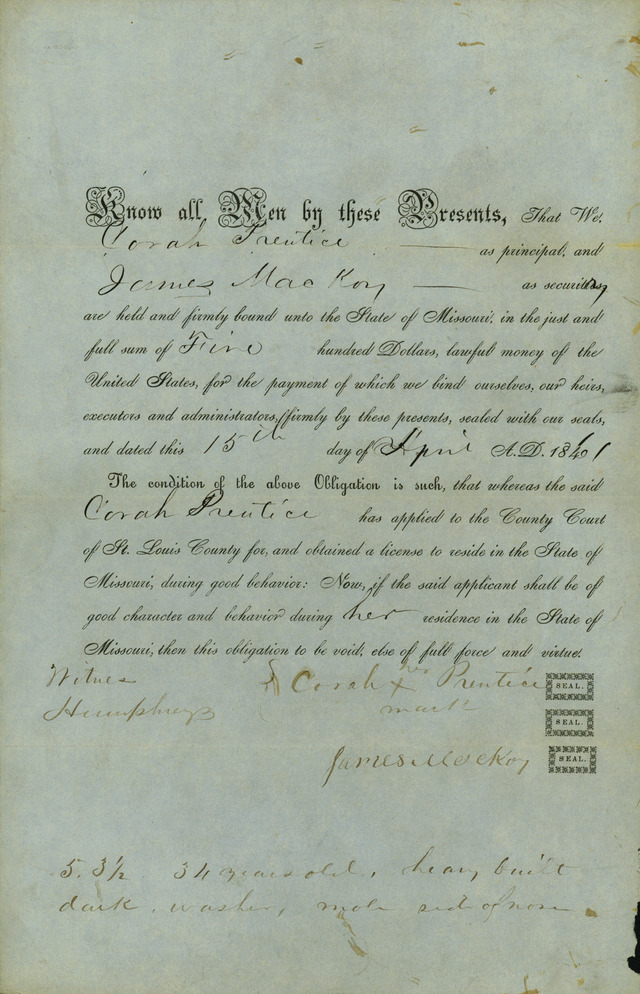 Know all Men by these Presents, That We,
Corah Prentice as principal, and
James MacKoy as security
are held and firmly bound unto the State of Missouri, in the just and
full sum of Five hundred Dollars, lawful money of the
United States, for the payment of which we bind ourselves, our heirs,
executors and administrators, firmly by these presents, sealed with our seals,
and dated this 15th day of April A.D. 1861
The condition of the above Obligation is such, that whereas the said
Corah Prentice has applied to the County Court
of St. Louis County for, and obtained a license to reside in the State of
Missouri, during good behavior: Now, if the said applicant shall be of
good character and behavior during her residence in the State of
Missouri, then this obligation to be void; else of full force and virtue.
Witness Corah her x Prentice SEAL.
Humphreys mark SEAL.
James MacKoy SEAL.
5. 3½ 34 years old, heavy built
dark, washer, mole side of nose